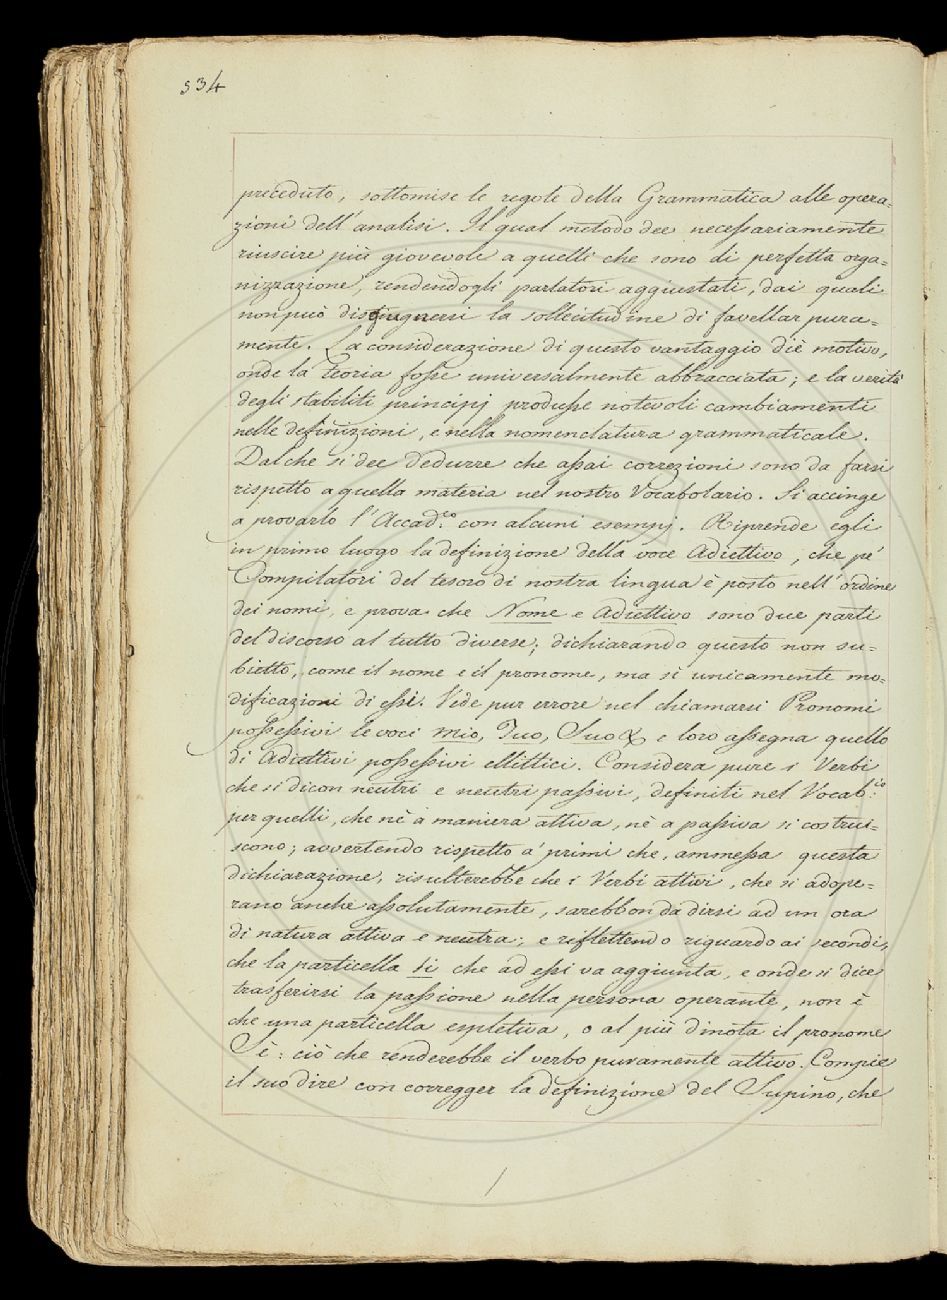 534
preceduto, sottomise le regole della Grammatica alle opera=
zioni dell'analisi. Il qual metodo dee necessariamente
riuscire più giovevole a quelli che sono di perfetta orga=
nizzazione, rendendogli parlatori aggiustati, dai quali
non può disgiugnersi la sollecitudine di favellar pura=
mente. La considerazione di questo vantaggio diè motivo,
onde la teoria fosse universalmente abbracciata; e la verità
degli stabiliti principj produsse notevoli cambiamenti
nelle definizioni, e nella nomenclatura grammaticale.
Dal che si dee dedurre che assai correzioni sono da farsi
rispetto a quella materia nel nostro Vocabolario. Si accinge
a provarlo l'Accad.co con alcuni esempj. Riprende egli
in primo luogo la definizione della voce Adiettivo, che pe'
Compilatori del tesoro di nostra lingua è posto nell'ordine
dei nomi, e prova che Nome e Adiettivo sono due parti
del discorso al tutto diverse; dichiarando questo non su=
bietto, come il nome e il pronome, ma sì unicamente mo=
dificazioni di essi. Vede pur errore nel chiamarsi Pronomi
possessivi le voci Mio, Tuo, Suo & e loro assegna quello
di Adiettivi possessivi ellittici. Considera pure i Verbi
che si dicon neutri e neutri passivi, definiti nel Vocab.io
per quelli, che nè a maniera attiva, nè a passiva si costrui=
scono; avvertendo rispetto a' primi che, ammessa questa
dichiarazione, risulterebbe che i Verbi attivi, che si adope=
rano anche assolutamente, sarebbon da dirsi ad un ora
di natura attiva e neutra; e riflettendo riguardo ai secondi,
che la particella si che ad essi va aggiunta, e onde si dice
trasferirsi la passione nella persona operante, non è
che una particella espletiva, o al più dinota il pronome
Sè: ciò che renderebbe il verbo puramente attivo. Compie
il suo dire con corregger la definizione del Supino, che